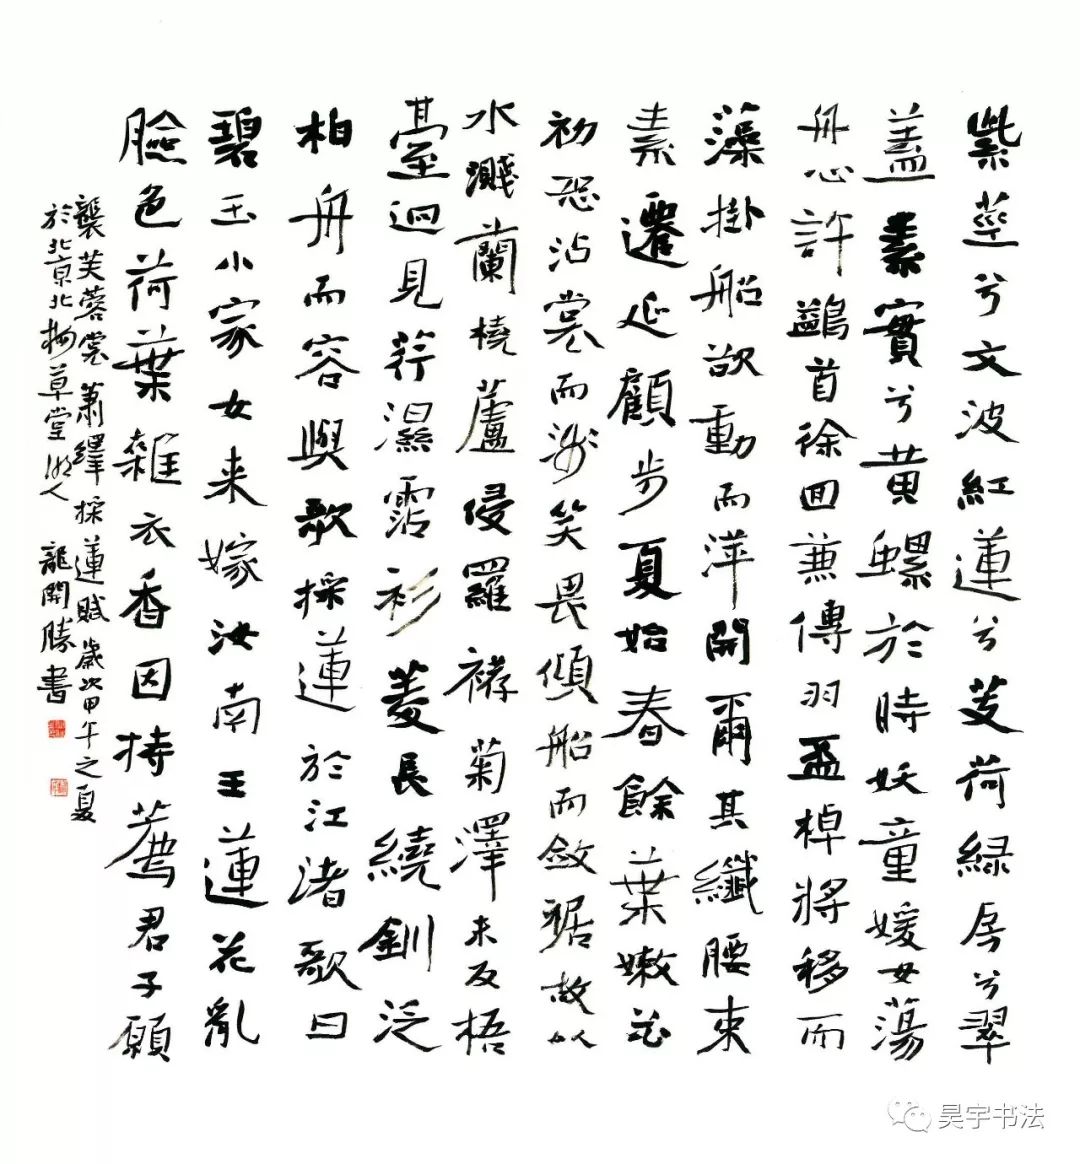 紫莖兮文波紅蓮兮芰荷綠房兮翠
蓋素實兮黄螺於時妖童媛女蕩
舟心許鷁首徐回兼傳羽盃棹將移而
藻掛船欲動而萍開爾其纖腰束
素遷延顧步夏始春餘葉嫩花
初恐沾裳而淺笑畏傾船而斂裾故以
水濺蘭橈蘆侵羅䙓菊澤未反梧
臺迥見荇濕霑衫菱長繞釧泛
柏舟而容與歌採蓮於江渚歌曰
碧玉小家女来嫁汝南王蓮花亂
臉色荷葉雜衣香因持薦君子願
襲芙蓉裳 蕭繹採蓮賦歲次甲午之夏
於北京北草堂 龍開勝書
昊宇书法